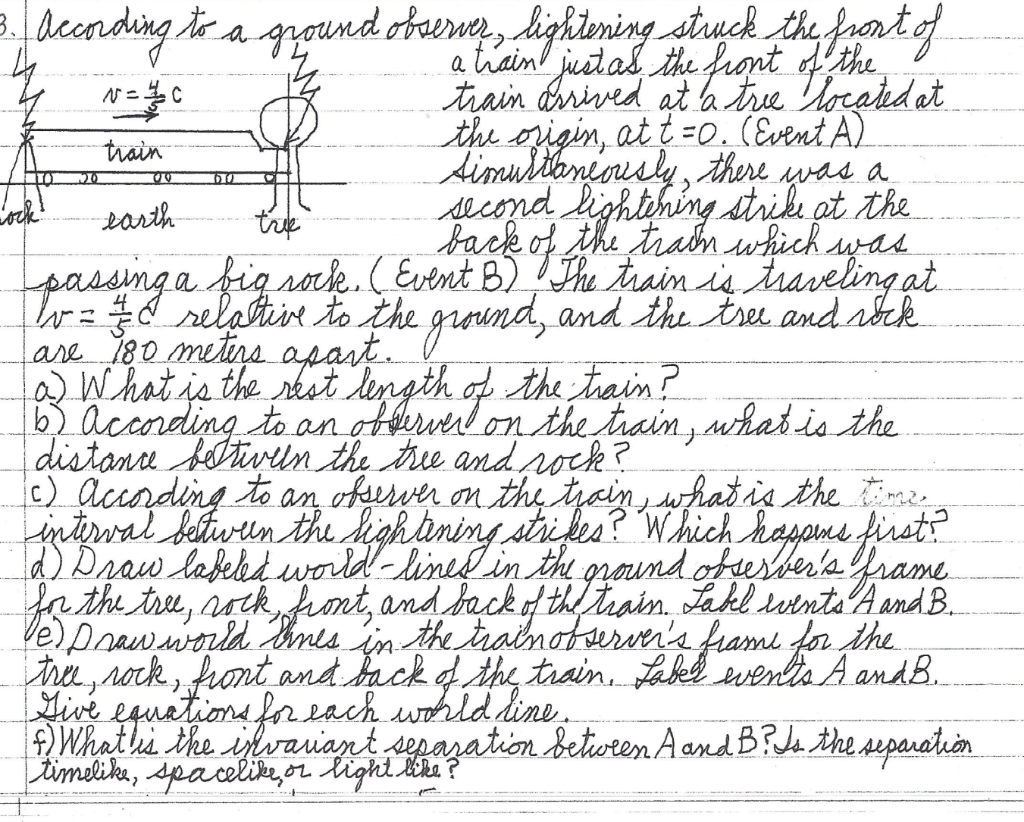 3. According to a ground observer, lightening struck the front of
a train just as the front of the
train arrived at a tree located at
the origin, at t=0. (Event A)
Simultaneously, there was a
second lightening strike at the
back of the train which was
passing a big rock. (Event B) The train is traveling at
v = 4/5 c relative to the ground, and the tree and rock
are 180 meters apart.
a) What is the rest length of the train?
b) According to an observer on the train, what is the
distance between the tree and rock?
c) According to an observer on the train, what is the time
interval between the lightening strikes? Which happens first?
d) Draw labeled world-lines in the ground observer's frame
for the tree, rock, front, and back of the train. Label events A and B.
e) Draw world lines in the train observer's frame for the
tree, rock, front and back of the train. Label events A and B.
Give equations for each world line.
f) What is the invariant separation between A and B? Is the separation
timelike, spacelike, or light like?
v = 4/5 c
train
rock earth tree